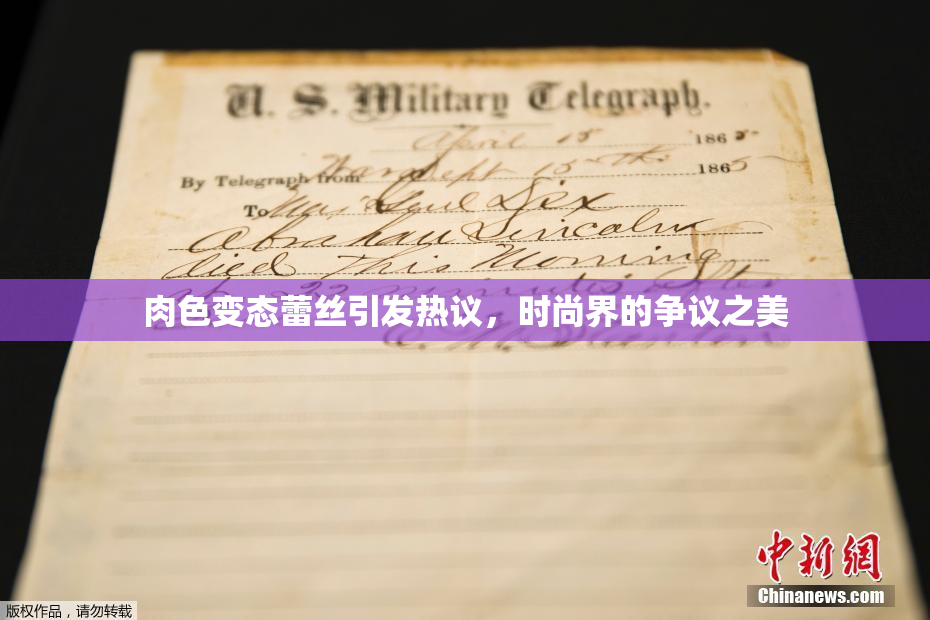 U. S. Military Telegraph.
April 15 1865
By Telegraph from War Dept 15th 1865
To Maj Genl Dix
Abraham Lincoln
died This Morning
at 22 minutes after
肉色变态蕾丝引发热议，时尚界的争议之美
E. M. Stanton
中新网
Chinanews.com
版权作品，请勿转载